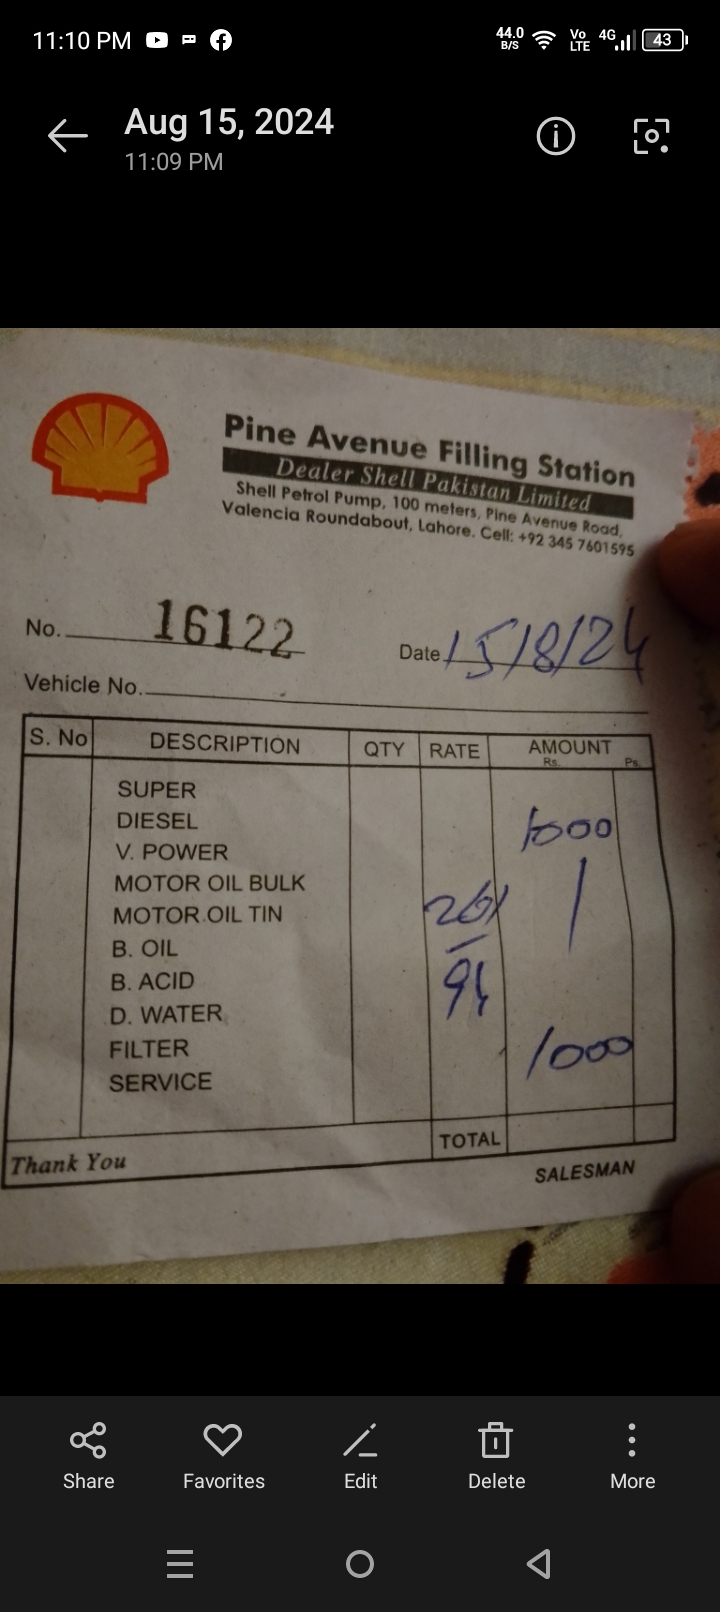 11:10 PM 44.0 B/S Vo LTE 4G 43
Aug 15, 2024
11:09 PM
Pine Avenue Filling Station
Dealer Shell Pakistan Limited
Shell Petrol Pump, 100 meters, Pine Avenue Road,
Valencia Roundabout, Lahore. Cell: +92 345 7601595
No. 16122 Date 15/8/24
Vehicle No.
S. No DESCRIPTION QTY RATE AMOUNT
Rs. Ps.
SUPER
DIESEL 1000
V. POWER
MOTOR OIL BULK
MOTOR OIL TIN 261
B. OIL
B. ACID
D. WATER
FILTER 1000
SERVICE
TOTAL
Thank You
SALESMAN
Share Favorites Edit Delete More